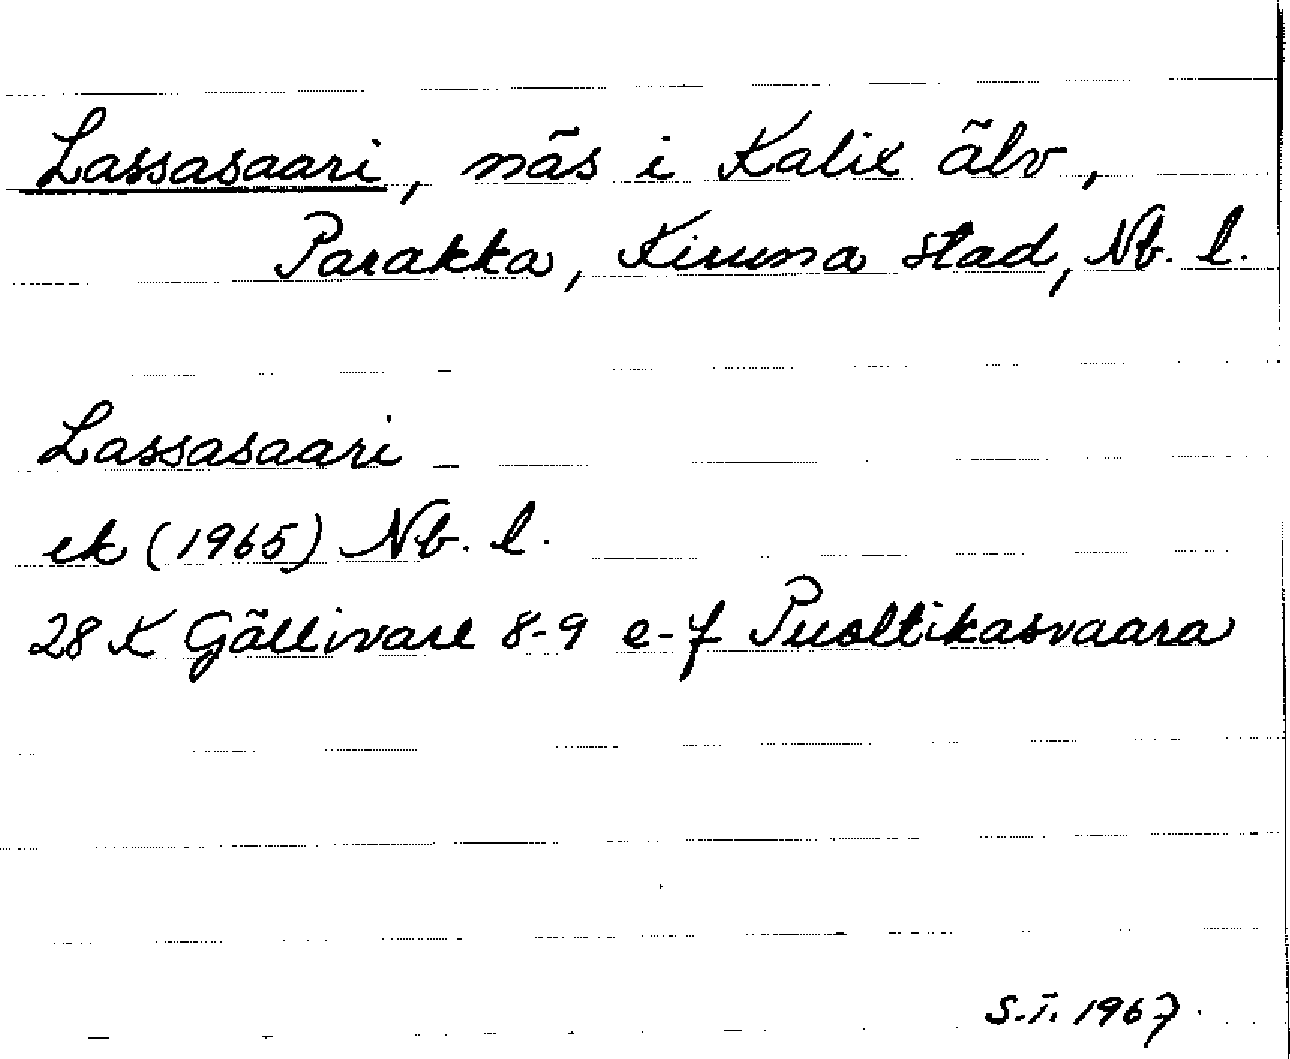 Lassasaari, näs i Kalix älv,
Parakka, Kiruna stad, Nb. l.
Lassasaari
ek (1965) Nb. l.
28 K Gällivare 8-9 e-f Puoltikasvaara
S.I. 1967.